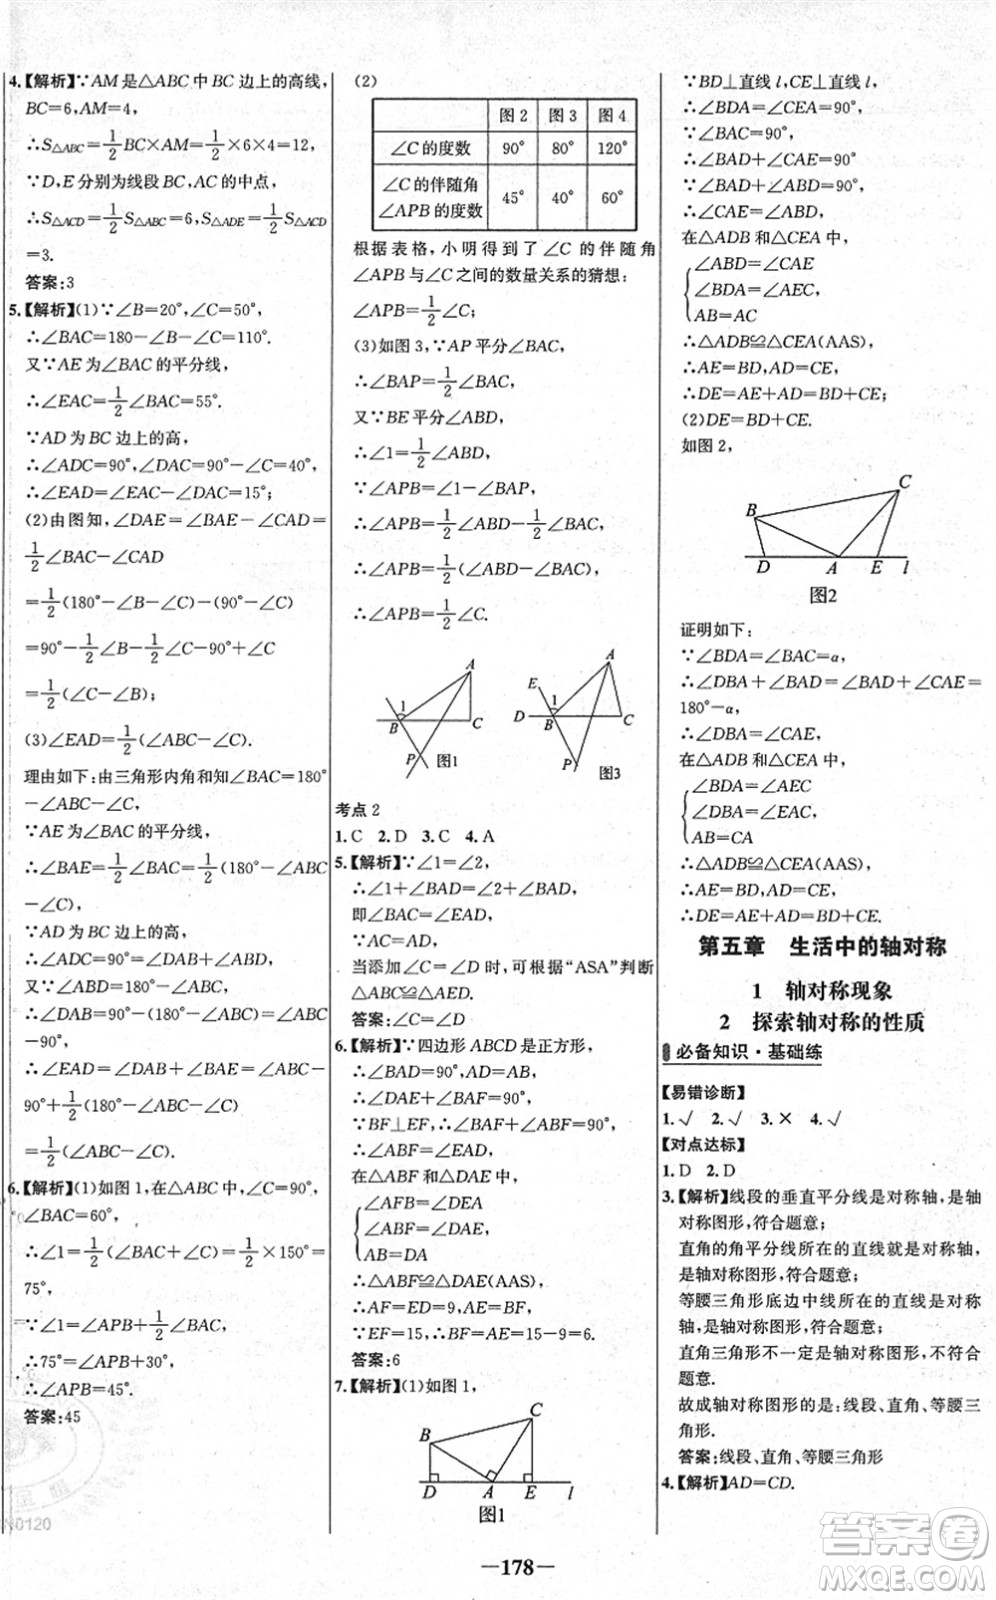 4.【解析】∵AM是△ABC中BC边上的高线,
BC=6,AM=4,
∴S△ABC=1/2BC×AM=1/2×6×4=12,
∵D,E分别为线段BC,AC的中点,
∴S△ACD=1/2S△ABC=6,S△ADE=1/2S△ACD
=3.
答案:3
5.【解析】(1)∵∠B=20°,∠C=50°,
∴∠BAC=180-∠B-∠C=110°.
又∵AE为∠BAC的平分线,
∴∠EAC=1/2∠BAC=55°.
∵AD为BC边上的高,
∴∠ADC=90°,∠DAC=90°-∠C=40°,
∴∠EAD=∠EAC-∠DAC=15°;
(2)由图知,∠DAE=∠BAE-∠CAD=
1/2∠BAC-∠CAD
=1/2(180°-∠B-∠C)-(90°-∠C)
=90°-1/2∠B-1/2∠C-90°+∠C
=1/2(∠C-∠B);
(3)∠EAD=1/2(∠ABC-∠C).
理由如下:由三角形内角和知∠BAC=180°
-∠ABC-∠C,
∵AE为∠BAC的平分线,
∴∠BAE=1/2∠BAC=1/2(180°-∠ABC
-∠C),
∵AD为BC边上的高,
∴∠ADC=90°=∠DAB+∠ABD,
又∵∠ABD=180°-∠ABC,
∴∠DAB=90°-(180°-∠ABC)=∠ABC
-90°,
∴∠EAD=∠DAB+∠BAE=∠ABC-
90°+1/2(180°-∠ABC-∠C)
=1/2(∠ABC-∠C).
6.【解析】(1)如图1,在△ABC中,∠C=90°,
∠BAC=60°,
∴∠1=1/2(∠BAC+∠C)=1/2×150°=
75°,
∵∠1=∠APB+1/2∠BAC,
∴75°=∠APB+30°,
∴∠APB=45°.
答案:45
(2)
图2 图3 图4
∠C的度数 90° 80° 120°
∠C的伴随角
∠APB的度数 45° 40° 60°
根据表格,小明得到了∠C的伴随角
∠APB与∠C之间的数量关系的猜想:
∠APB=1/2∠C;
(3)如图3,∵AP平分∠BAC,
∴∠BAP=1/2∠BAC,
又∵BE平分∠ABD,
∴∠1=1/2∠ABD,
∵∠APB=∠1-∠BAP,
∴∠APB=1/2∠ABD-1/2∠BAC,
∴∠APB=1/2(∠ABD-∠BAC),
∴∠APB=1/2∠C.
A
1
B
C
P
图1
E
A
1
D
B
C
P
图3
考点2
1.C 2.D 3.C 4.A
5.【解析】∵∠1=∠2,
∴∠1+∠BAD=∠2+∠BAD,
即∠BAC=∠EAD,
∵AC=AD,
当添加∠C=∠D时,可根据“ASA”判断
△ABC≌△AED.
答案:∠C=∠D
6.【解析】∵四边形ABCD是正方形,
∴∠BAD=90°,AB=AD,
∴∠DAE+∠BAF=90°,
∵BF⊥EF,∴∠BAF+∠ABF=90°,
∴∠ABF=∠EAD,
在△ABF和△DAE中,
∠AFB=∠DEA
∠ABF=∠DAE,
AB=DA
∴△ABF≌△DAE(AAS),
∴AF=ED=9,AE=BF,
∵EF=15,∴BF=AE=15-9=6.
答案:6
7.【解析】(1)如图1,
C
B
D
A
E
l
图1
∵BD⊥直线l,CE⊥直线l,
∴∠BDA=∠CEA=90°,
∵∠BAC=90°,
∴∠BAD+∠CAE=90°
∵∠BAD+∠ABD=90°,
∴∠CAE=∠ABD,
在△ADB和△CEA中,
∠ABD=∠CAE
∠BDA=∠AEC,
AB=AC
∴△ADB≌△CEA(AAS)
∴AE=BD,AD=CE,
∴DE=AE+AD=BD+CE;
(2)DE=BD+CE.
如图2,
C
B
D
A
E
l
图2
证明如下:
∵∠BDA=∠BAC=α,
∴∠DBA+∠BAD=∠BAD+∠CAE=
180°-α,
∴∠DBA=∠CAE,
在△ADB和△CEA中
∠BDA=∠AEC
∠DBA=∠EAC,
AB=CA
∴△ADB≌△CEA(AAS),
∴AE=BD,AD=CE,
∴DE=AE+AD=BD+CE.
第五章 生活中的轴对称
1 轴对称现象
2 探索轴对称的性质
必备知识·基础练
【易错诊断】
1.√ 2.√ 3.× 4.√
【对点达标】
1.D 2.D
3.【解析】线段的垂直平分线是对称轴,是轴
对称图形,符合题意;
直角的角平分线所在的直线就是对称轴,
是轴对称图形,符合题意;
等腰三角形底边中线所在的直线是对称
轴,是轴对称图形,符合题意;
直角三角形不一定是轴对称图形,不符合
题意.
故成轴对称图形的是:线段、直角、等腰三
角形.
答案:线段、直角、等腰三角形
4.【解析】AD=CD.
—178—
答案圈
MXQE.COM